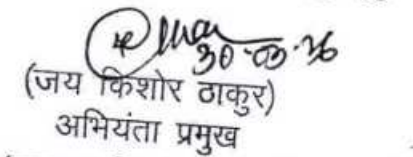 30-03-26
(जय किशोर ठाकुर)
अभियंता प्रमुख